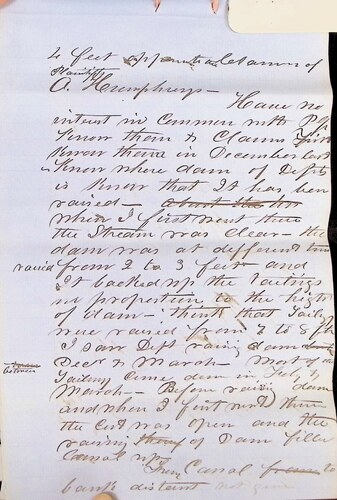 4 feet
Plaintiff
A. Humphrys —
Have no
interest in common with Pff
Know them & Claims first
Know them in December last
Know where dam of Defts
is Know that It has been
raised —
when I first went there
the Stream was clear — the
dam was at different times
raised from 2 to 3 feet and
It backed up the tailings
in proportion to the hight
of dam — think that Tailings
were raised from 7 to 8 ft
I saw Deft raising dam
between Decr & March — most of
Tailings Came down in Feby &
March — Before raising dam
and when I first went there
the Cut was open and the
raising of Dam fills
Canal up
From Canal to
bank distent